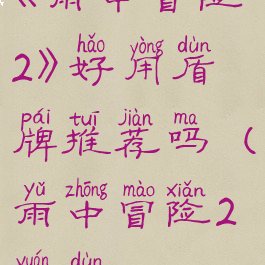 《雨中冒险
hǎo yòng dùn
2》好用盾
pái tuī jiàn ma
牌推荐吗（
yǔ zhōng mào xiǎn
雨中冒险2
yuán dùn